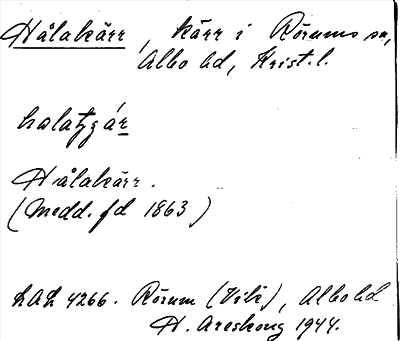 Hålakärr, kärr i Rörums sn,
Albo hd, Krist. l.
halatʒár
Hålakärr.
(Medd. fd 1863)
LAL 4266. Rörum (Vik), Albo hd
H. Areskoug 1944.